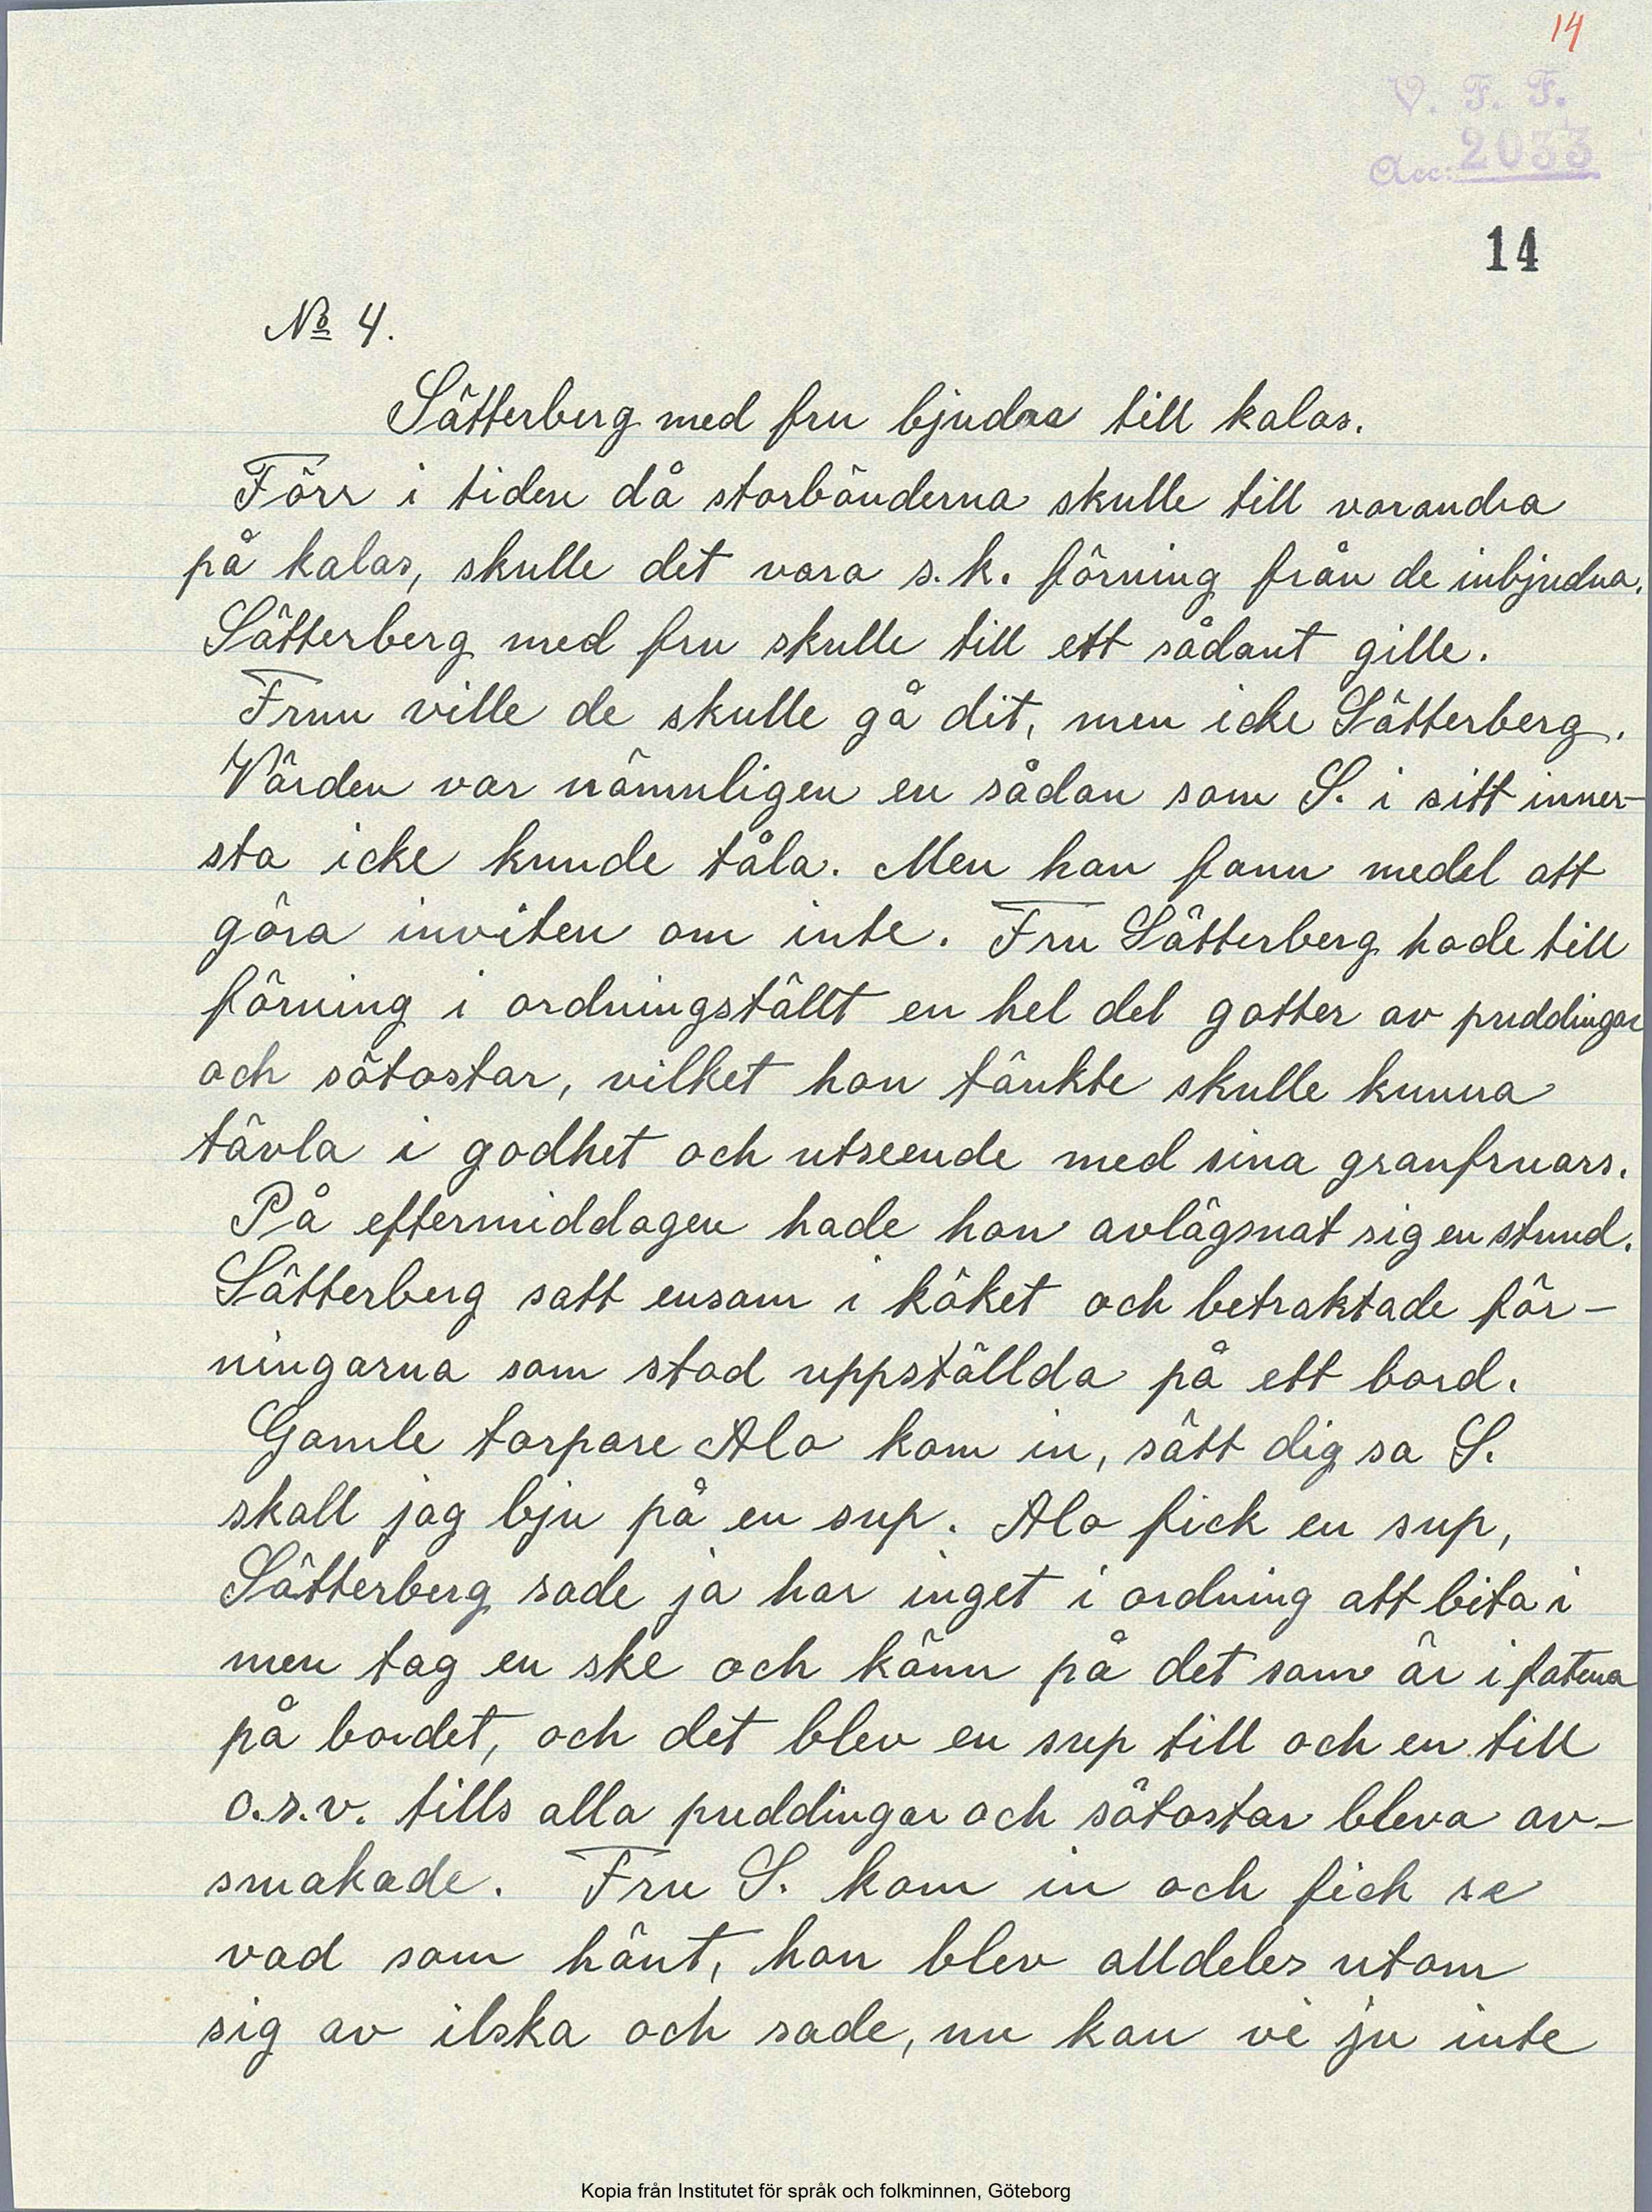 14
V. F. F.
Acc: 2033
14
No 4.
Sätterberg med fru bjudas till kalas.
Förr i tiden då storbönderna skulle till varandra
på kalas, skulle det vara s.k. förning från de inbjudna.
Sätterberg med fru skulle till ett sådant gille.
Frun ville de skulle gå dit, men icke Sätterberg.
Värden var nämnligen en sådan som S. i sitt inner-
sta icke kunde tåla. Men han fann medel att
göra inviten om inte. Fru Sätterberg hade till
förning i ordningställt en hel del gotter av puddingar
och sötostar, vilket hon tänkte skulle kunna
tävla i godhet och utseende med sina granfruars.
På eftermiddagen hade hon avlägsnat sig en stund.
Sätterberg satt ensam i köket och betraktade för-
ningarna som stod uppställda på ett bord.
Gamle torpare Alo kom in, sätt dig sa S.
skall jag bju på en sup. Alo fick en sup,
Sätterberg sade ja har inget i ordning att bita i
men tag en ske och känn på det som är i fatena
på bordet, och det blev en sup till och en till
o.s.v. tills alla puddingar och sötostar bleva av-
smakade. Fru S. kom in och fick se
vad som hänt, hon blev alldeles utom
sig av ilska och sade, nu kan vi ju inte
Kopia från Institutet för språk och folkminnen, Göteborg